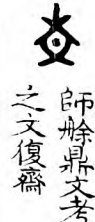 師艅鼎文考
之文復齋